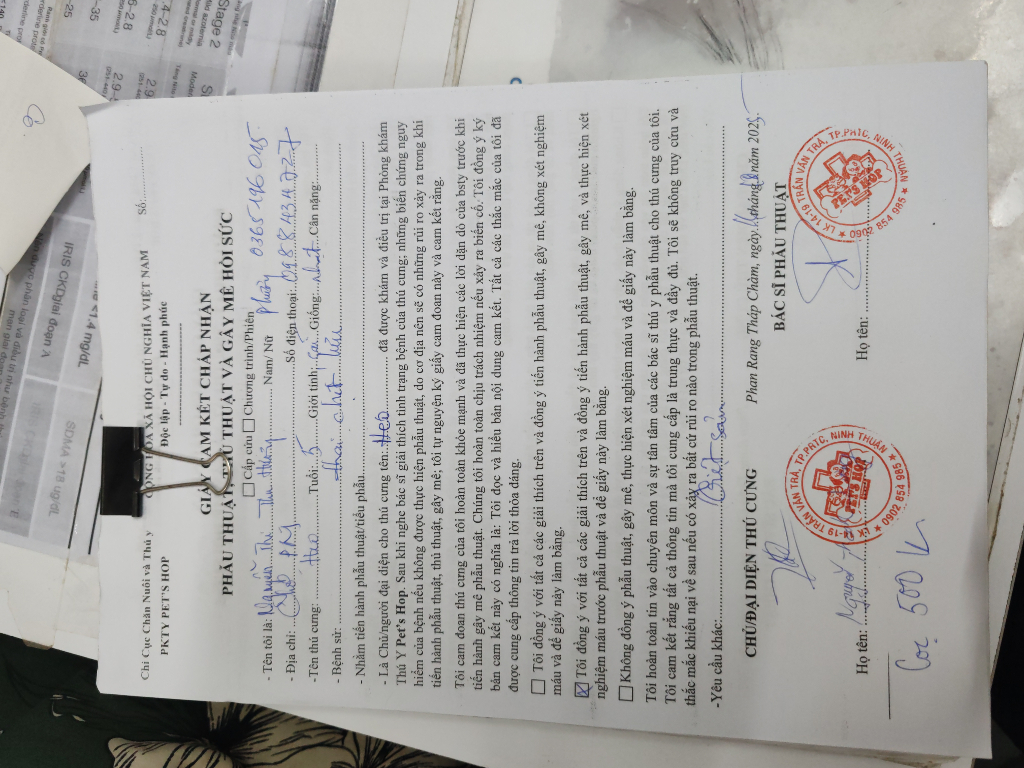 Chi Cục Chăn Nuôi và Thú y
PKTY PET'S HOP
CỘNG HÒA XÃ HỘI CHỦ NGHĨA VIỆT NAM
Độc lập - Tự do - Hạnh phúc
Số:
GIẤY CAM KẾT CHẤP NHẬN
PHẪU THUẬT HẬU THUẬT VÀ GÂY MÊ HỒI SỨC
Cấp cứu Chương trình/Phiên
- Tên tôi là: Nguyễn Thị Thu Thủy Nam/ Nữ Phượng 0365116015
- Địa chỉ: Số điện thoại: 0988434727
-Tên thú cưng: Heo Tuổi: 5 Giới tính: cái Giống: nhật Cân nặng:
- Bệnh sử: thai chết lưu
- Nhằm tiến hành phẫu thuật/tiểu phẫu
- Là Chủ/người đại diện cho thú cưng tên: Heo đã được khám và điều trị tại Phòng khám
Thú Y Pet's Hop. Sau khi nghe bác sĩ giải thích tình trạng bệnh của thú cưng, những biến chứng nguy
hiểm của bệnh nếu không được thực hiện phẫu thuật, do cơ địa nên sẽ có những rủi ro xảy ra trong khi
tiến hành phẫu thuật, thủ thuật, gây mê; tôi tự nguyện ký giấy cam đoan này và cam kết rằng.
Tôi cam đoan thú cưng của tôi hoàn toàn khỏe mạnh và đã thực hiện các lời dặn dò của bsty trước khi
tiến hành gây mê phẫu thuật. Chúng tôi hoàn toàn chịu trách nhiệm nếu xảy ra biến cố. Tôi đồng ý ký
bản cam kết này có nghĩa là: Tôi đọc và hiểu bản nội dung cam kết. Tất cả các thắc mắc của tôi đã
được cung cấp thông tin trả lời thỏa đáng.
Tôi đồng ý với tất cả các giải thích trên và đồng ý tiến hành phẫu thuật, gây mê, không xét nghiệm
máu và để giấy này làm bằng.
Tôi đồng ý với tất cả các giải thích trên và đồng ý tiến hành phẫu thuật, gây mê, và thực hiện xét
nghiệm máu trước phẫu thuật và để giấy này làm bằng.
Không đồng ý phẫu thuật, gây mê, thực hiện xét nghiệm máu và để giấy này làm bằng.
Tôi hoàn toàn tin vào chuyên môn và sự tận tâm của các bác sĩ thú y phẫu thuật cho thú cưng của tôi.
Tôi cam kết rằng tất cả thông tin mà tôi cung cấp là trung thực và đầy đủ. Tôi sẽ không truy cứu và
thắc mắc khiếu nại về sau nếu có xảy ra bất cứ rủi ro nào trong phẫu thuật.
-Yêu cầu khác: Triệt sản
Phan Rang Tháp Chàm, ngày tháng năm 2025
CHỦ/ĐẠI DIỆN THÚ CƯNG
BÁC SĨ PHẪU THUẬT
LK 14-19 TRẦN VĂN TRÀ, TP.PRTC, NINH THUẬN
PETS HOP
0902 854 985
LK 14-19 TRẦN VĂN TRÀ, TP.PRTC, NINH THUẬN
PETS HOP
0902 854 985
Họ tên:
Họ tên:
Cọc 500 k
Stage 2
IRIS CKD giai đoạn
SDMA >18 ug/dL